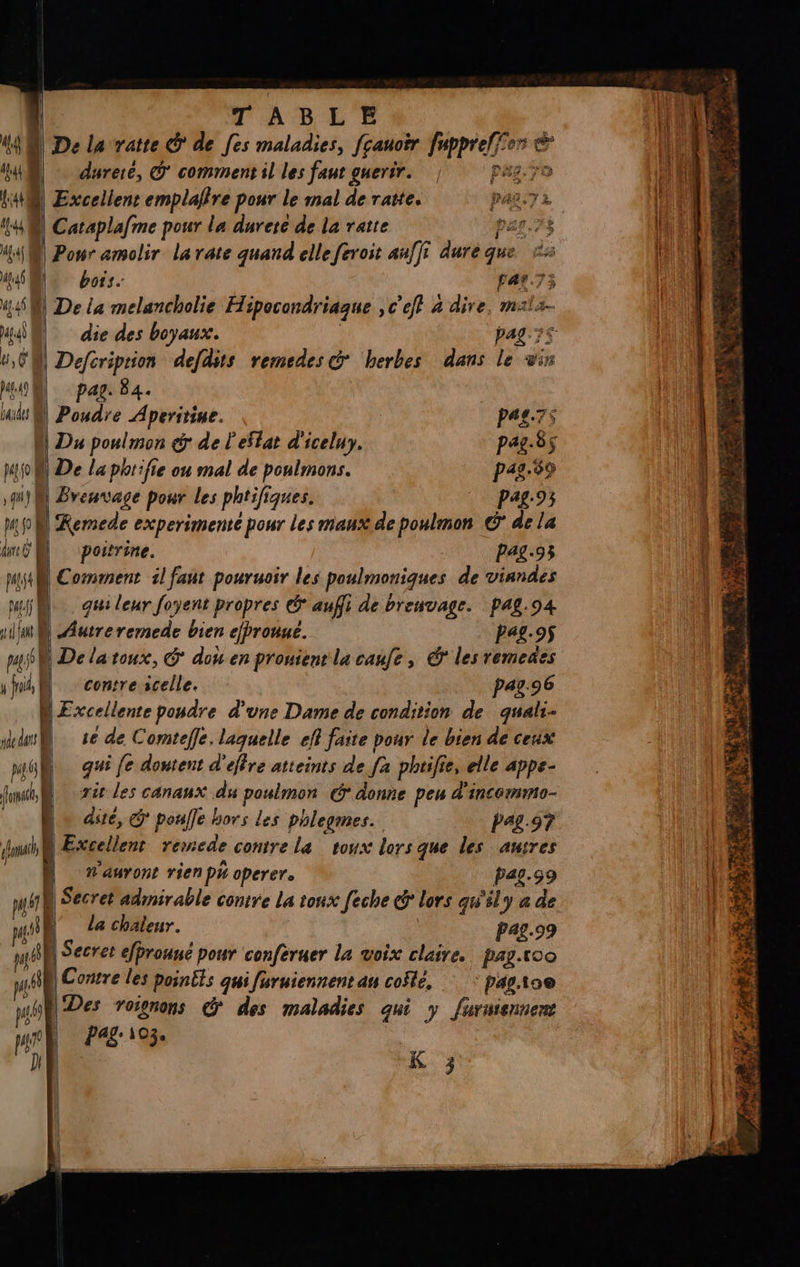 TABLE
De la ratte & de ſes maladies, ſçauoir ſuppreſſion &
dureté, & comment il les faut guerir. pag.70
Excellent emplaſtre pour le mal de ratte. pag.72
Cataplaſme pour la dureté de la ratte pag.73
Pour amolir la rate quand elle ſeroit auſſi dure que du
bois. pag.73
De la melancholie Hipocondriaque, c'eſt à dire, mala-
die des boyaux. pag.75
Deſcription deſdits remedes & herbes dans le vin
pag. 84.
Poudre Aperitiue. pag.75
Du poulmon & de l'eſtat d'iceluy. pag.85
De la phtiſie ou mal de poulmons. pag.89
Breuvage pour les phtiſiques. pag.93
Remede experimenté pour les maux de poulmon & de la
poitrine. pag.93
Comment il faut pouruoir les poulmoniques de viandes
qui leur ſoyent propres & auſſi de breuvage. pag.94
Autre remede bien eſprouué. pag.95
De la toux, & d'où en prouient la cauſe, & les remedes
contre icelle. pag.96
Excellente poudre d'vne Dame de condition de quali-
té de Comteſſe, laquelle eſt faite pour le bien de ceux
qui ſe doutent d'eſtre atteints de ſa phtiſie, elle appe-
rit les canaux du poulmon & donne peu d'incommo-
dité, & pouſſe hors les phlegmes. pag.97
Excellent remede contre la toux lors que les autres
n'auront rien pû operer. pag.99
Secret admirable contre la toux ſeche & lors qu'il y a de
la chaleur. pag.99
Secret eſprouué pour conſeruer la voix claire. pag.100
Contre les poincts qui ſuruiennent au coſté, pag.100
Des roignons & des maladies qui y ſuruiennent
pag. 103.
K 3